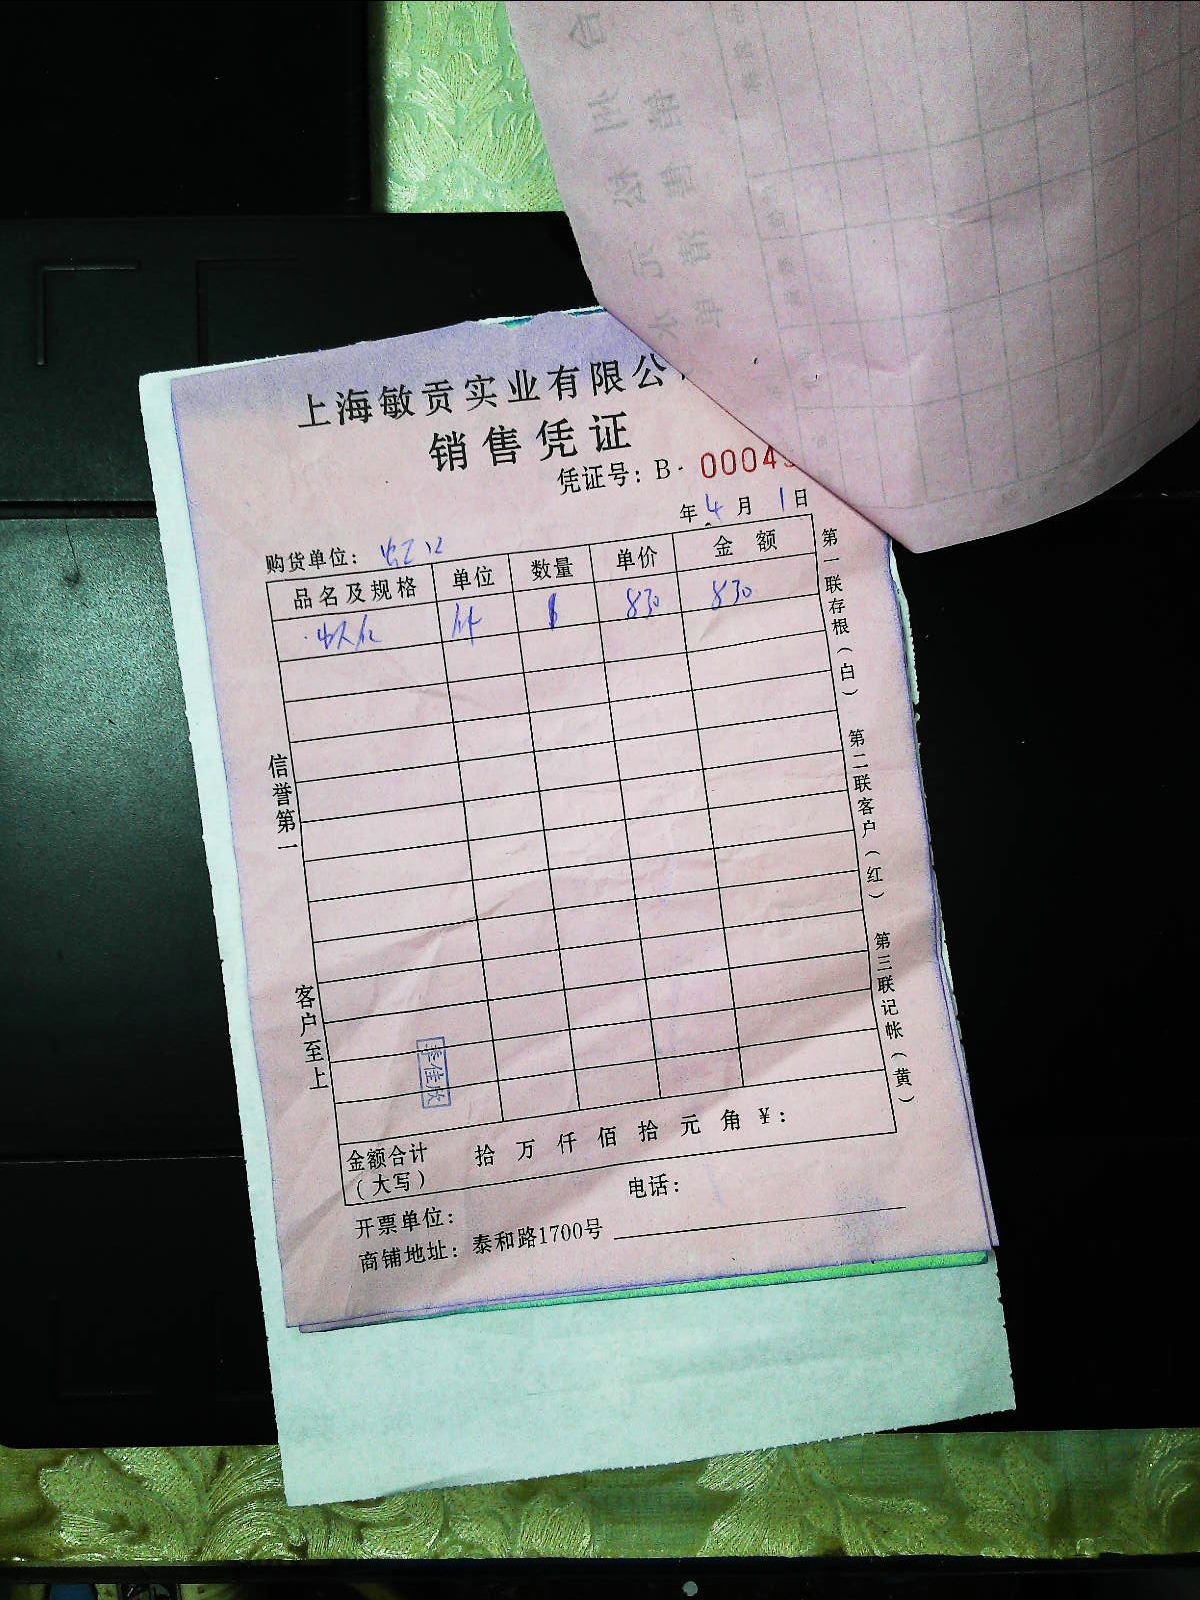 上海敏贡实业有限公
销售凭证
凭证号：B- 00045
年 4 月 1 日
购货单位： 虹口
品名及规格 单位 数量 单价 金额
件 1 830 830
信誉第一 客户至上
第一联存根（白） 第二联客户（红） 第三联记帐（黄）
佳欣
金额合计（大写） 拾 万 仟 佰 拾 元 角 ￥：
开票单位： 电话：
商铺地址：泰和路1700号